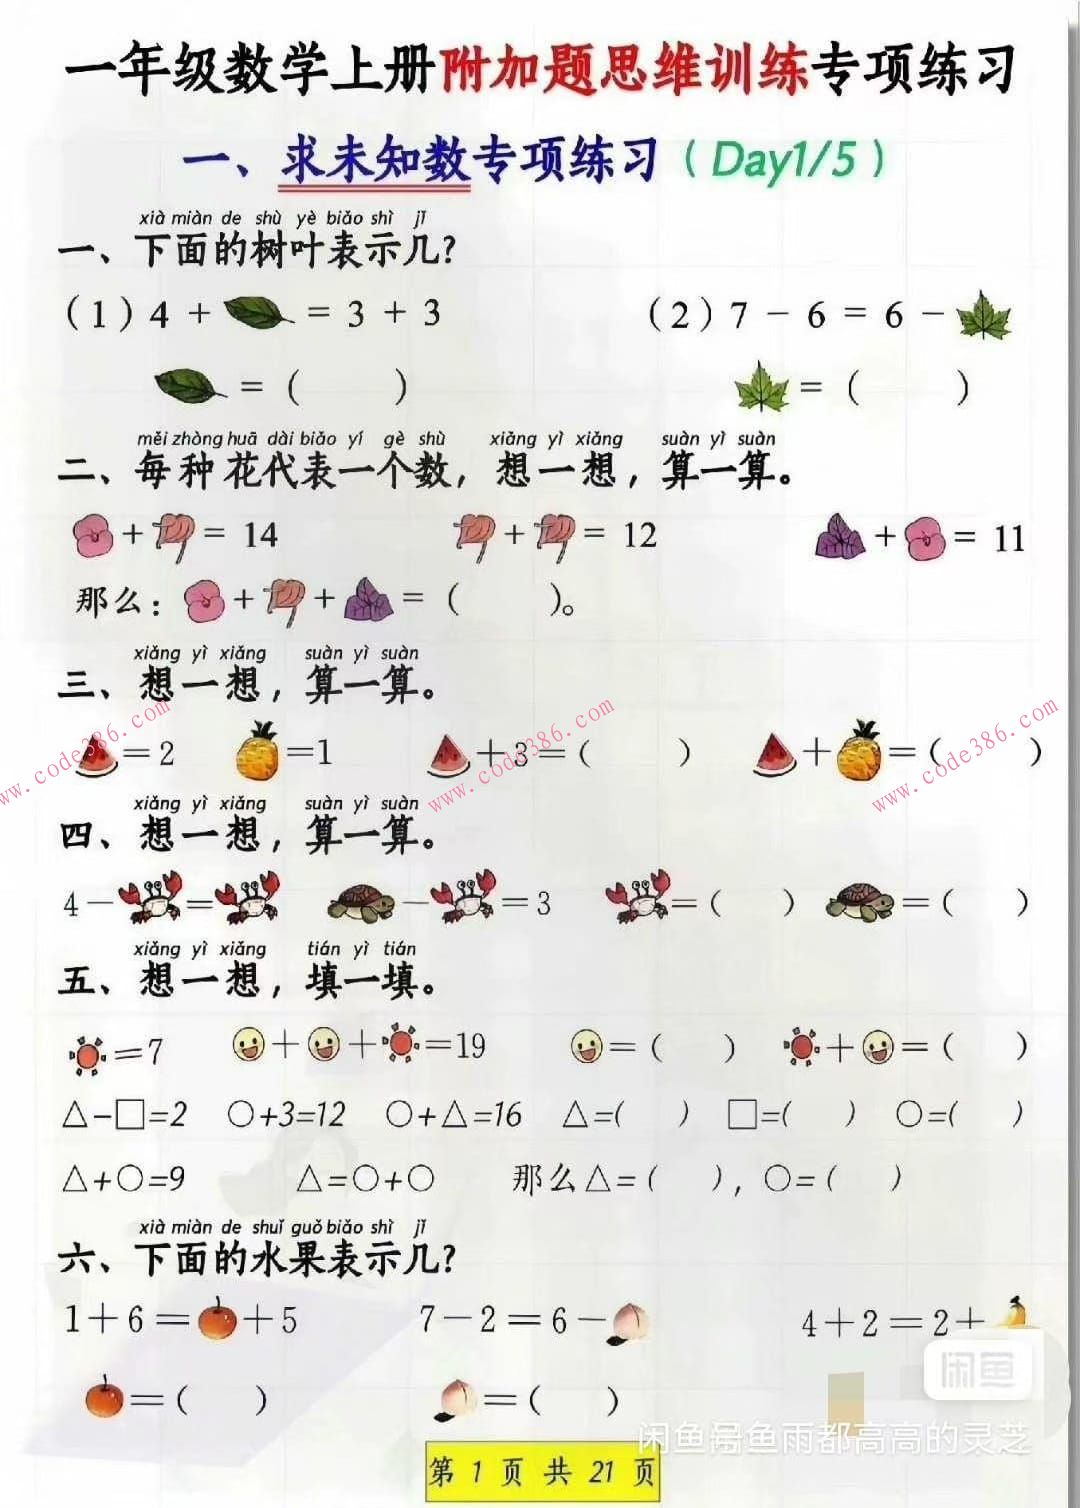 一年级数学上册附加题思维训练专项练习
一、求未知数专项练习（Day1/5）
xià miàn de shù yè biǎo shì jǐ
一、下面的树叶表示几？
（1）4 + = 3 + 3 （2）7 － 6 = 6 －
=（ ） =（ ）
měi zhòng huā dài biǎo yí gè shù xiǎng yì xiǎng suàn yì suàn
二、每种花代表一个数，想一想，算一算。
+ = 14 + = 12 + = 11
那么： + + =（ ）。
xiǎng yì xiǎng suàn yì suàn
三、想一想，算一算。
=2 =1 +3=（ ） + =（ ）
www.code386.com www.code386.com www.code386.com
xiǎng yì xiǎng suàn yì suàn
四、想一想，算一算。
4－ = － =3 =（ ） =（ ）
xiǎng yì xiǎng tián yì tián
五、想一想，填一填。
=7 + + =19 =（ ） + =（ ）
△-□=2 ○+3=12 ○+△=16 △=( ) □=( ) ○=( )
△+○=9 △=○+○ 那么△=( )，○=( )
xià miàn de shuǐ guǒ biǎo shì jǐ
六、下面的水果表示几？
1＋6＝ ＋5 7－2＝6－ 4＋2＝2＋
＝（ ） ＝（ ）
闲鱼
闲鱼号鱼雨都高高的灵芝
第 1 页 共 21 页